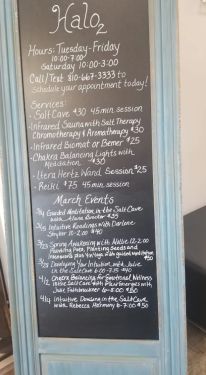 Halo₂
Hours: Tuesday-Friday
10:00-7:00
Saturday 10:00-3:00
Call/Text 810-667-3333 to
Schedule your appointment today!
Services:
-Salt Cave $30 45 min session
-Infrared Sauna with Salt Therapy
Chromotherapy & Aromatherapy $30
-Infrared Biomat or Bemer $25
-Chakra Balancing Lights with
Meditation
-Itera Hertz Wand Session $25
-Reiki $75 45 min session
March Events
Guided Meditation in the Salt Cave
with
Intuitive Readings with Darlene
10-2:00
Spring Awakening with 12-2:00
Planting Seeds and
Developing Your Intuition with Julie
in the Salt Cave 6:00-7:15
Chakra Balancing for Emotional Wellness
in the Salt Cave with
Julie
Intuitive Dowsing in the Salt Cave
with Rebecca 6-7:00 $30